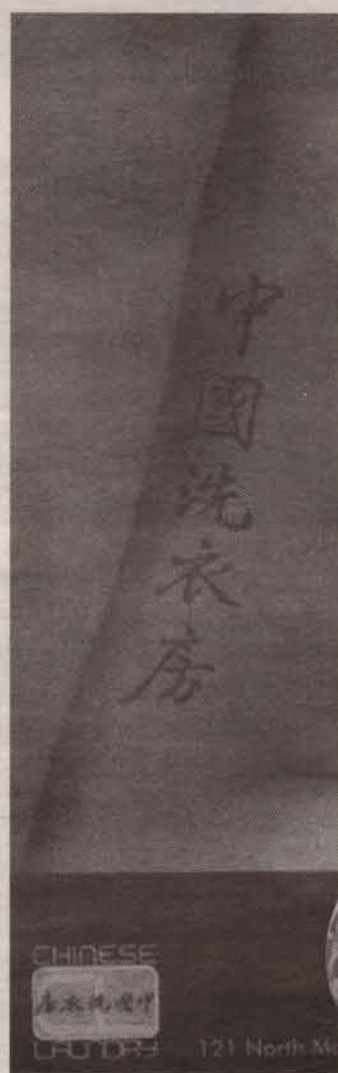 中國洗衣房
CHINESE
房衣洗國中
LAUNDRY
121 North